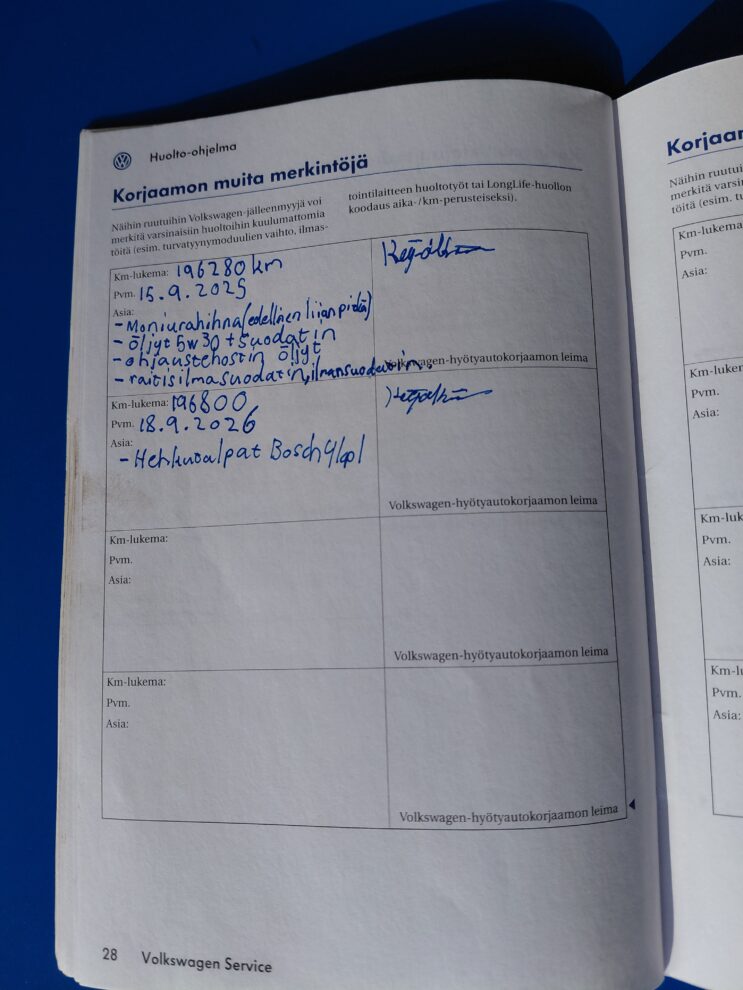 Huolto-ohjelma
Korjaamon muita merkintöjä
Näihin ruutuihin Volkswagen-jälleenmyyjä voi
merkitä varsinaisiin huoltoihin kuulumattomia
töitä (esim. turvatyynymoduulien vaihto, ilmas-
tointilaitteen huoltotyöt tai LongLife-huollon
koodaus aika-/km-perusteiseksi).
Km-lukema: 196280 km
Pvm. 15.9.2025
Asia:
- Moniurahihna (edellinen liian pitkä)
- öljyt 5w30 + suodatin
- ohjaustehostin öljyt
- raitisilmasuodatin, ilmansuodatin.
Volkswagen-hyötyautokorjaamon leima
Km-lukema: 196800
Pvm. 18.9.2026
Asia:
- Hehkutulpat Bosch 4kpl
Volkswagen-hyötyautokorjaamon leima
Km-lukema:
Pvm.
Asia:
Volkswagen-hyötyautokorjaamon leima
Km-lukema:
Pvm.
Asia:
Volkswagen-hyötyautokorjaamon leima
28 Volkswagen Service
Näihin
merkitä
töitä (esim.
Km-lukema:
Pvm.
Asia:
Pvm.
Asia:
Pvm.
Asia:
Pvm.
Asia: